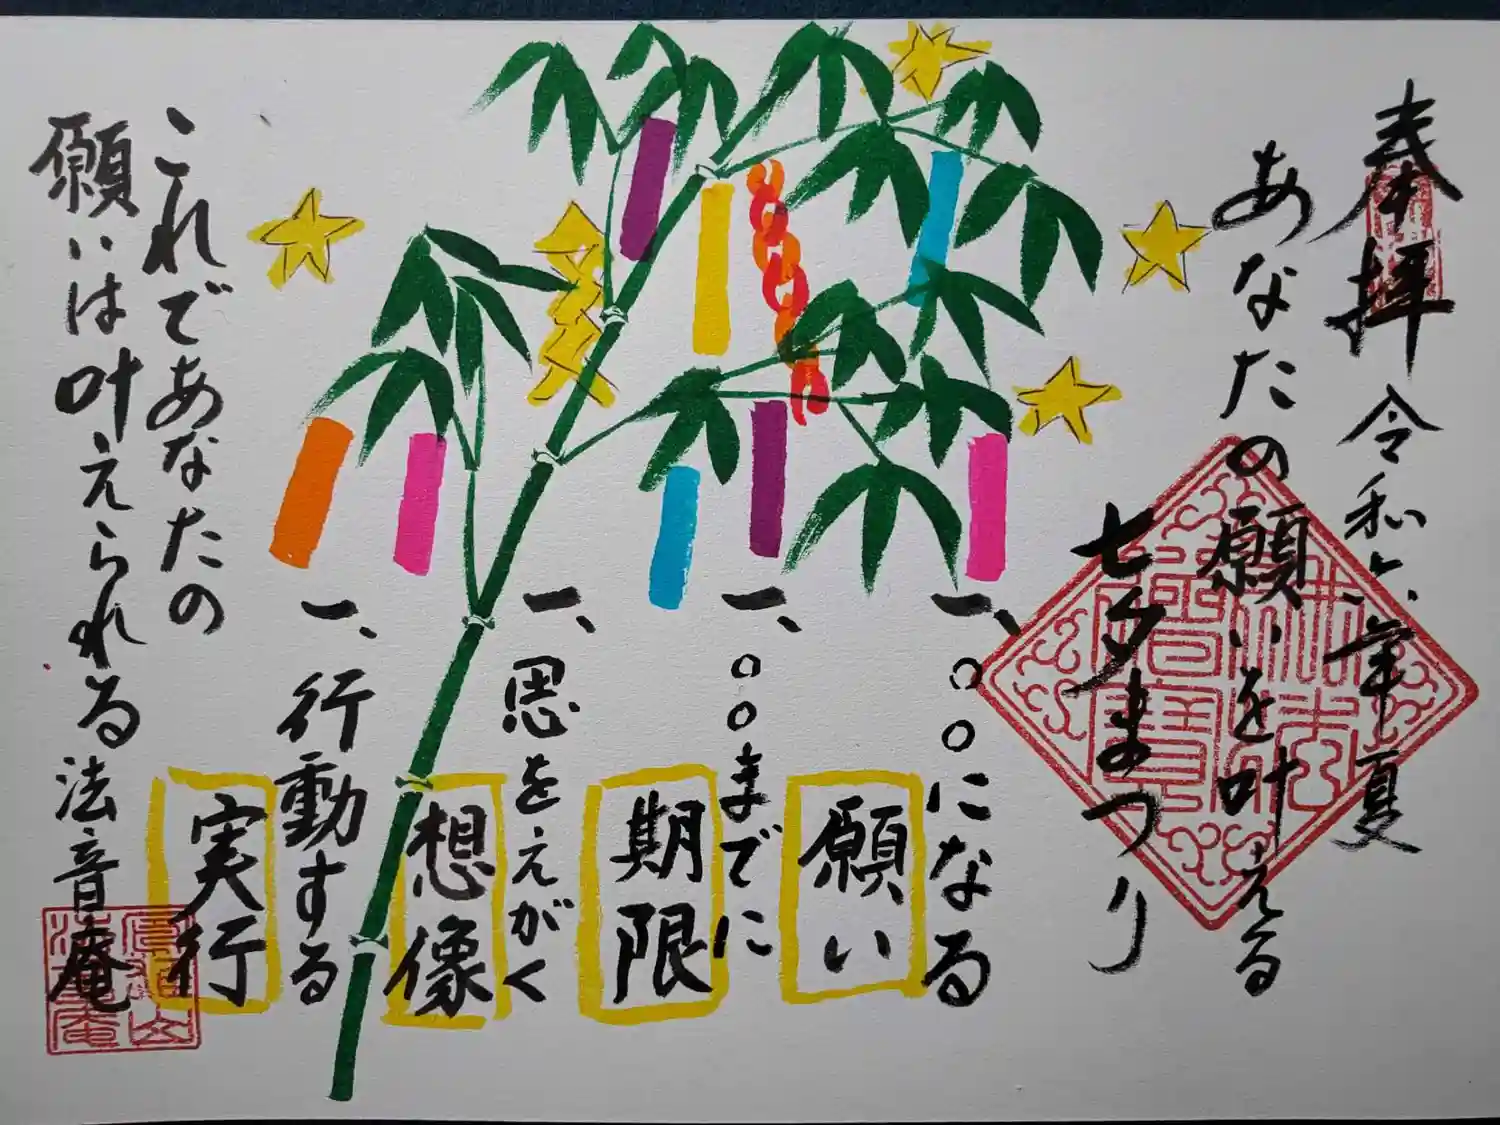 奉拝 令和六年夏
あなたの願いを叶える
七夕まつり
一、○○になる
願い
一、○○までに
期限
一、思をえがく
想像
一、行動する
実行
これであなたの
願いは叶えられる 法音庵